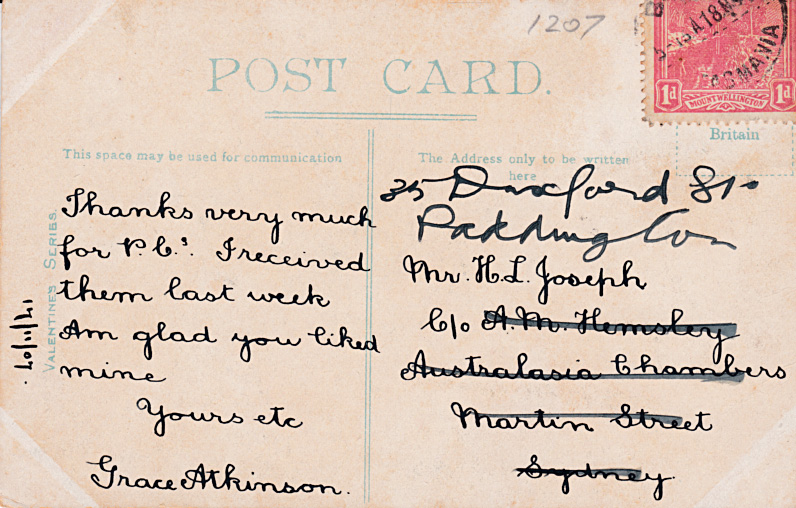 1207
POST CARD.
TASMANIA
1d MOUNT WELLINGTON 1d
Britain
This space may be used for communication
The Address only to be written
here
VALENTINES SERIES.
Thanks very much
for P.C.s. I received
them last week
Am glad you liked
mine
Yours etc
Grace Atkinson.
35 Duxford St.
Paddington
Mr. H.L. Joseph
C/o A.M. Hemsley
Australasia Chambers
Martin Street
Sydney.